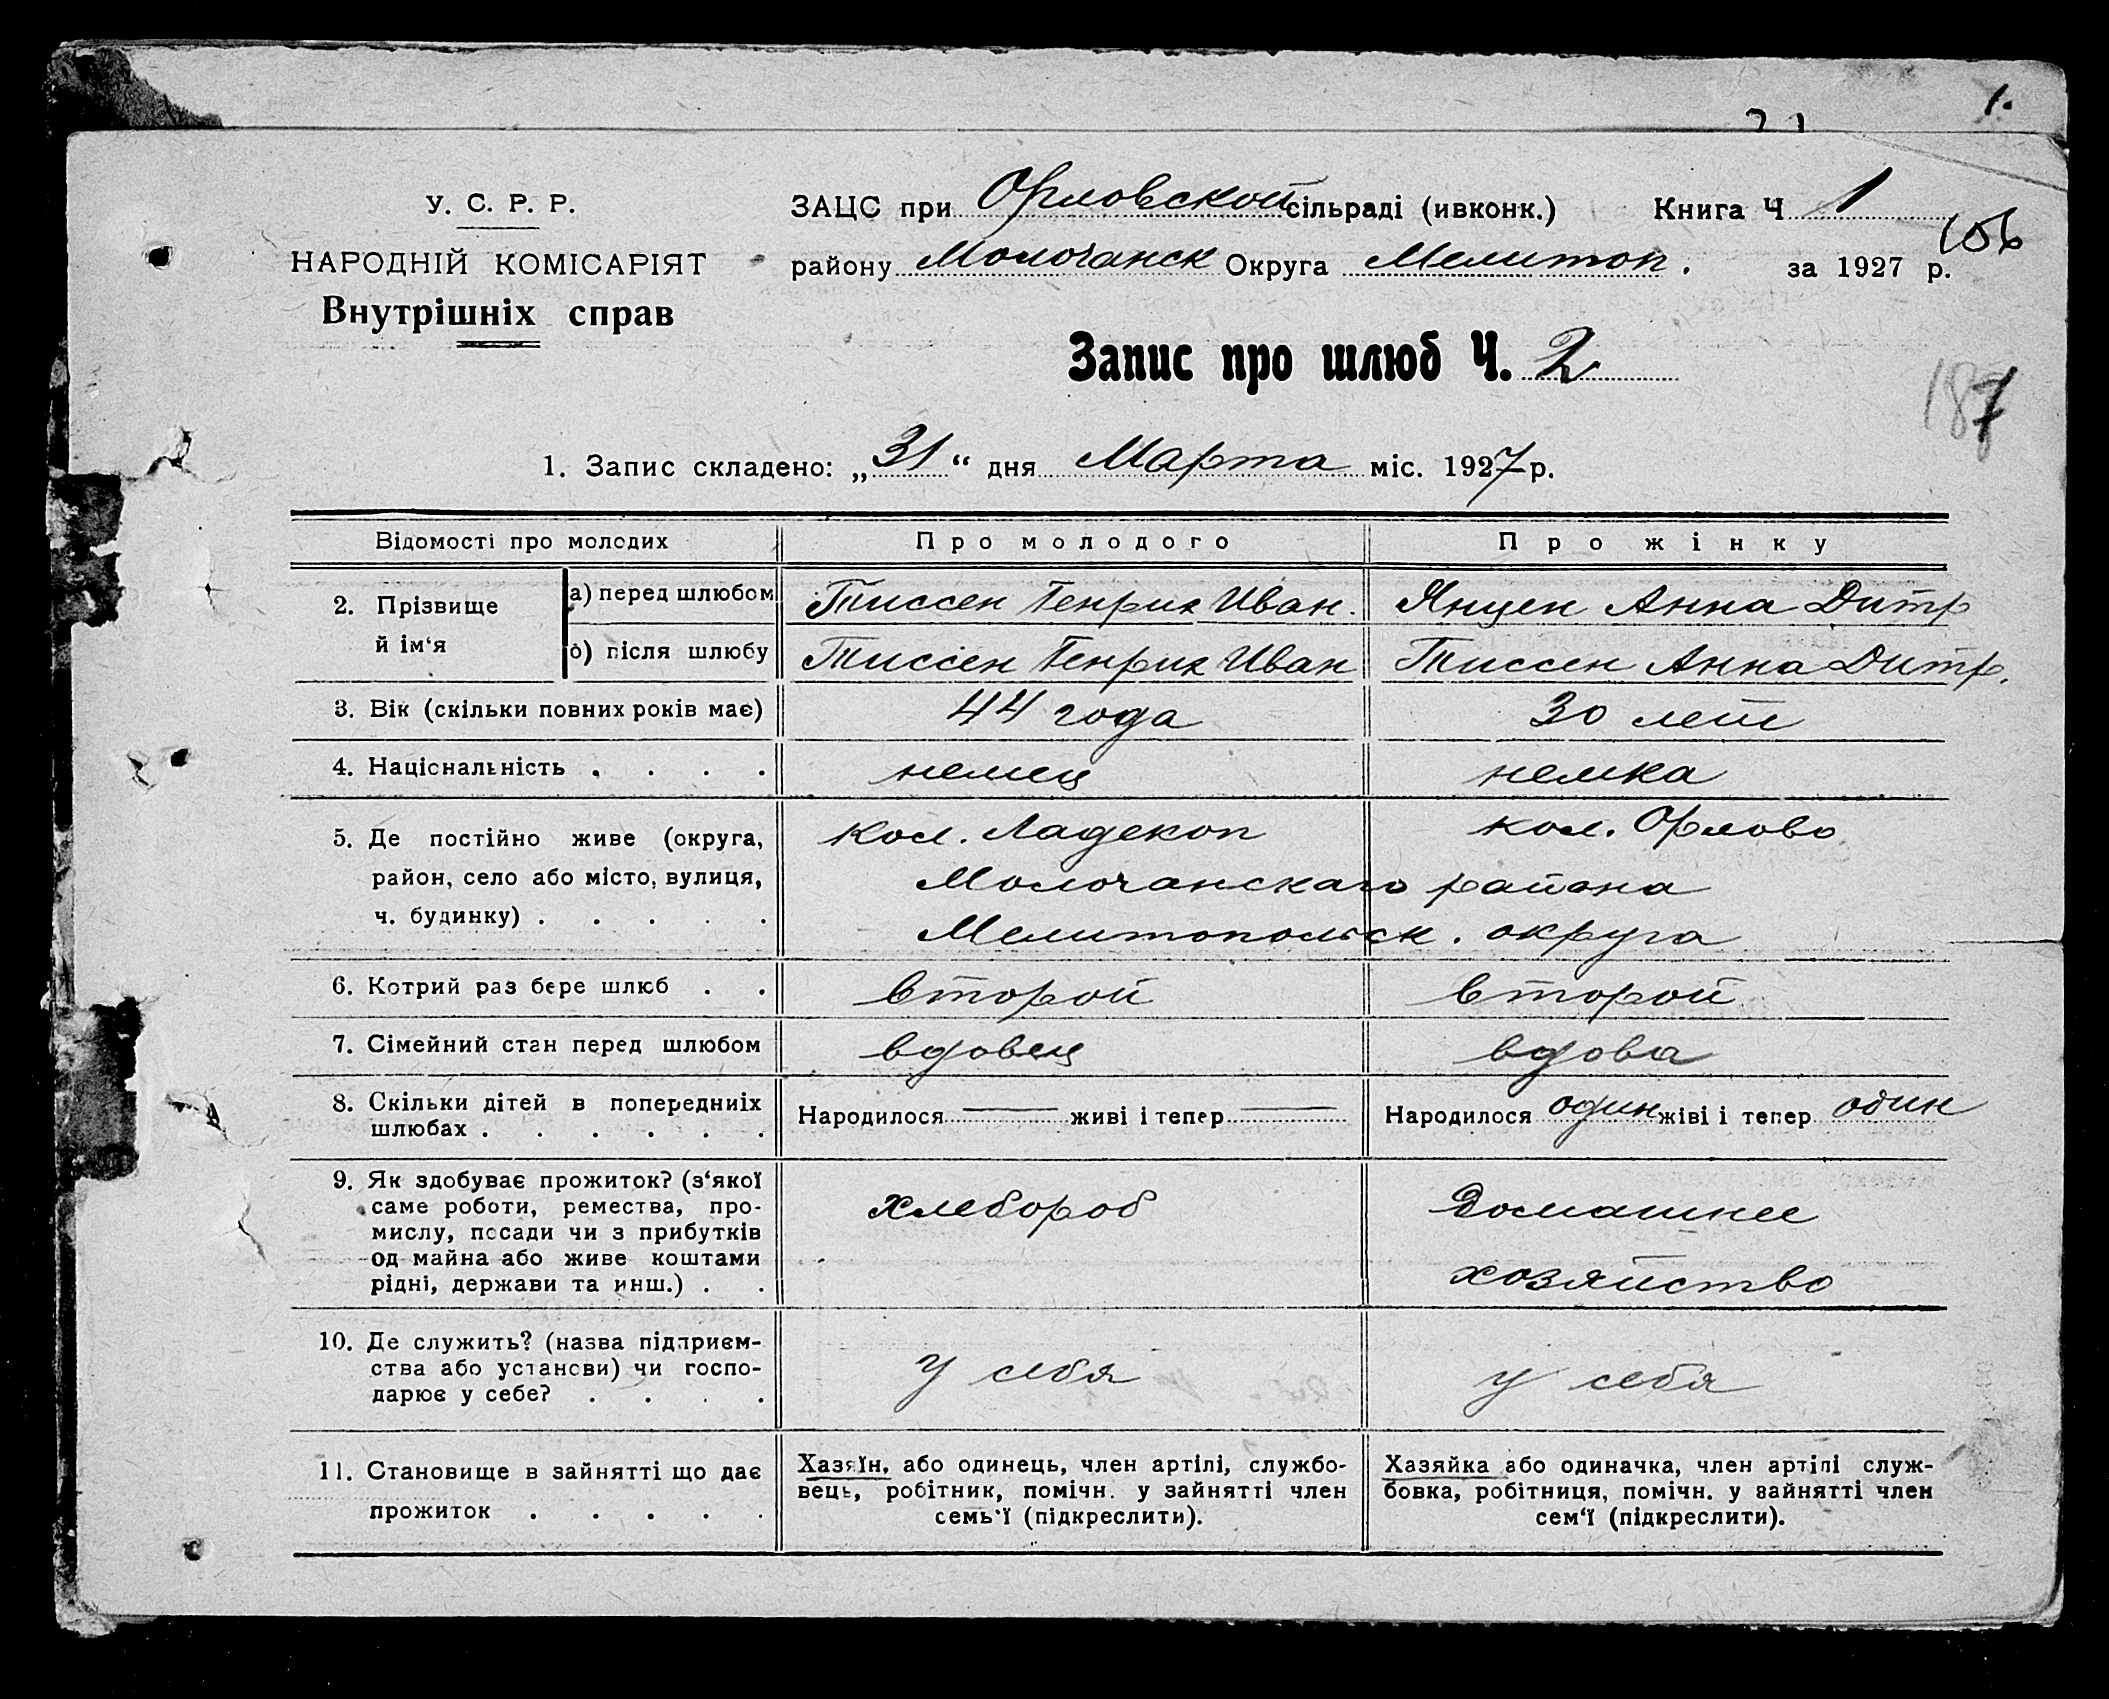 1.
У. С. Р. Р.
НАРОДНІЙ КОМІСАРІЯТ
Внутрішніх справ
ЗАЦС при Орловской сільраді (ивконк.) Книга Ч 1
106
району Молочанск Округа Мелитоп. за 1927 р.
Запис про шлюб Ч. 2
187
1. Запис складено: „31“ дня Марта міс. 1927 р.
Відомості про молодих
Про молодого
Про жінку
2. Прізвище й ім‘я
а) перед шлюбом
Тиссен Генрих Иван.
Янцен Анна Дитр
б) після шлюбу
Тиссен Генрих Иван
Тиссен Анна Дитр.
3. Вік (скільки повних років має)
44 года
30 лет
4. Національність . . . .
немец
немка
5. Де постійно живе (округа,
район, село або місто, вулиця,
ч. будинку) . . . . .
кол. Ладекоп
кол. Орлово
Молочанскаго района
Мелитопольск. округа
6. Котрий раз бере шлюб . .
второй
второй
7. Сімейний стан перед шлюбом
вдовец
вдова
8. Скільки дітей в попередниіх
шлюбах . . . . . .
Народилося — живі і тепер —
Народилося один жіві і тепер один
9. Як здобуває прожиток? (з‘якої
саме роботи, ремества, про-
мислу, посади чи з прибутків
од майна або живе коштами
рідні, держави та инш.) . .
хлебороб
Домашнее
хозяйство
10. Де служить? (назва підприєм-
ства або установи) чи госпо-
дарює у себе? . . . .
у себя
у себя
11. Становище в зайнятті що дає
прожиток . . . . .
Хазяїн, або одинець, член артілі, службо-
вець, робітник, помічн. у зайнятті член
семь‘ї (підкреслити).
Хазяйка або одиначка, член артілі служ-
бовка, робітниця, помічн. у зайнятті член
сем‘ї (підкреслити).